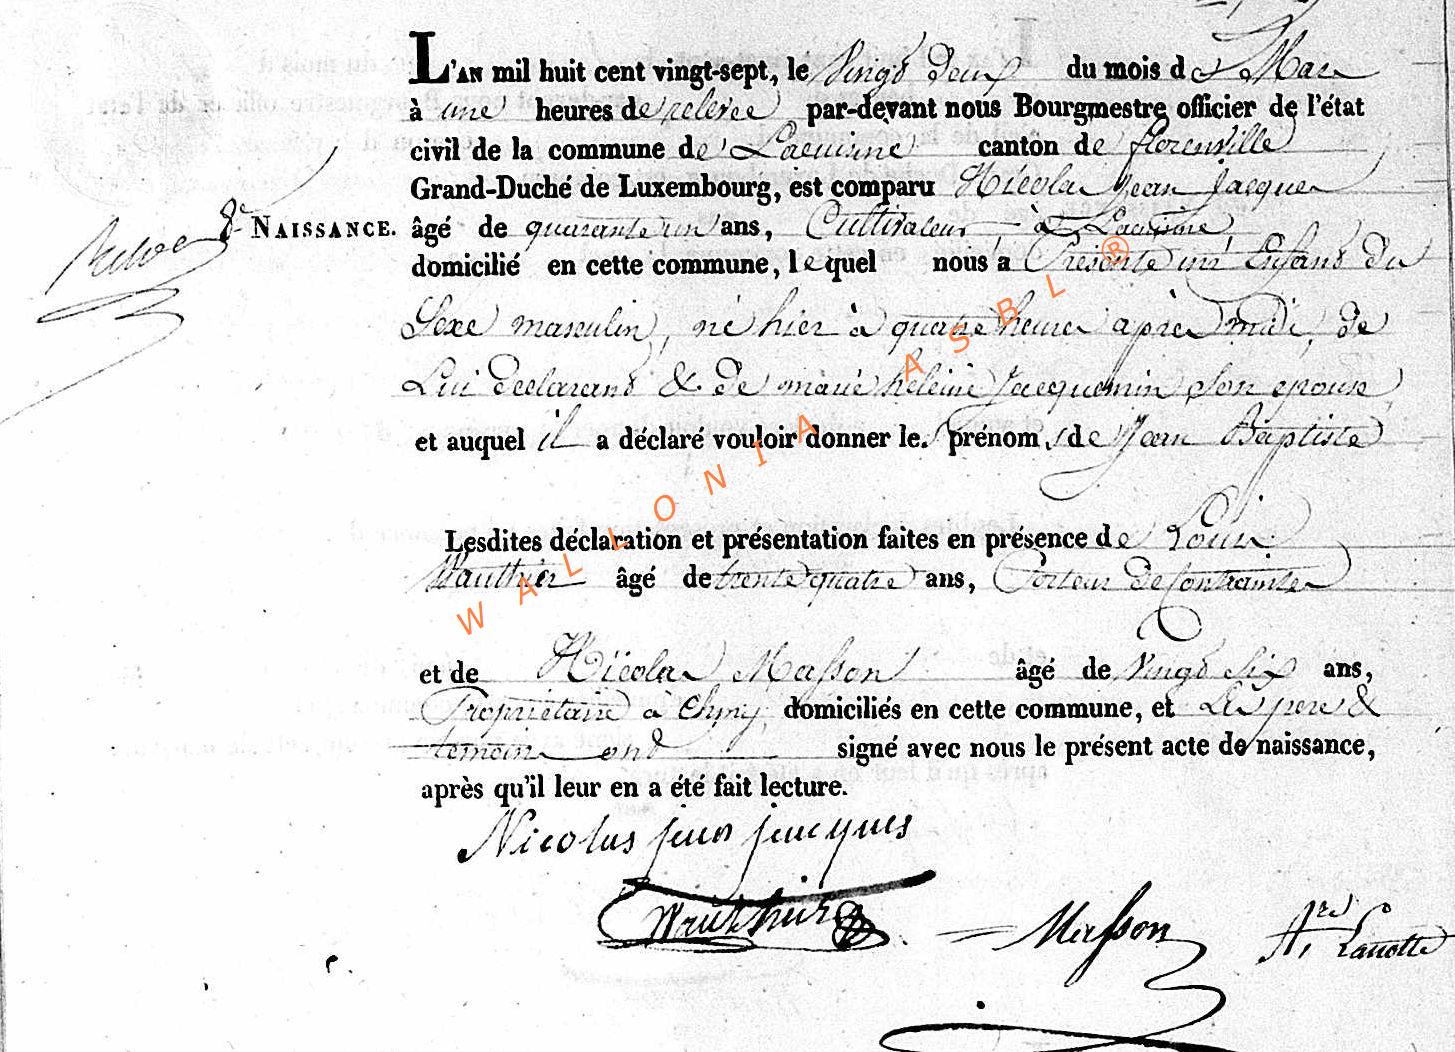 L'AN mil huit cent vingt-sept, le Vingt Deux du mois de Mars
à une heures de relevée par-devant nous Bourgmestre officier de l'état
civil de la commune de Lacuisne canton de florenville
Grand-Duché de Luxembourg, est comparu Nicolas Jean Jacques
8e NAISSANCE. âgé de quarante un ans, Cultivateur à Lacuisine
domicilié en cette commune, lequel nous a Présenté un Enfant du
Sexe masculin, né hier à quatre heures après midi, de
Lui declarant & de marie heleine Jacquemin son epouse
et auquel il a déclaré vouloir donner les prénoms de Jean Baptiste
Lesdites déclaration et présentation faites en présence de Louis
Wauthier âgé de trente quatre ans, Porteur de Contraintes
et de Nicolas Masson âgé de Vingt Six ans,
Propriétaire à Chiny, domiciliés en cette commune, et Les pere &
temoins ont signé avec nous le présent acte de naissance,
après qu'il leur en a été fait lecture.
Nicolas jean jacques
Wauthier
Masson
Lanotte
WALLONIA ASBL ®